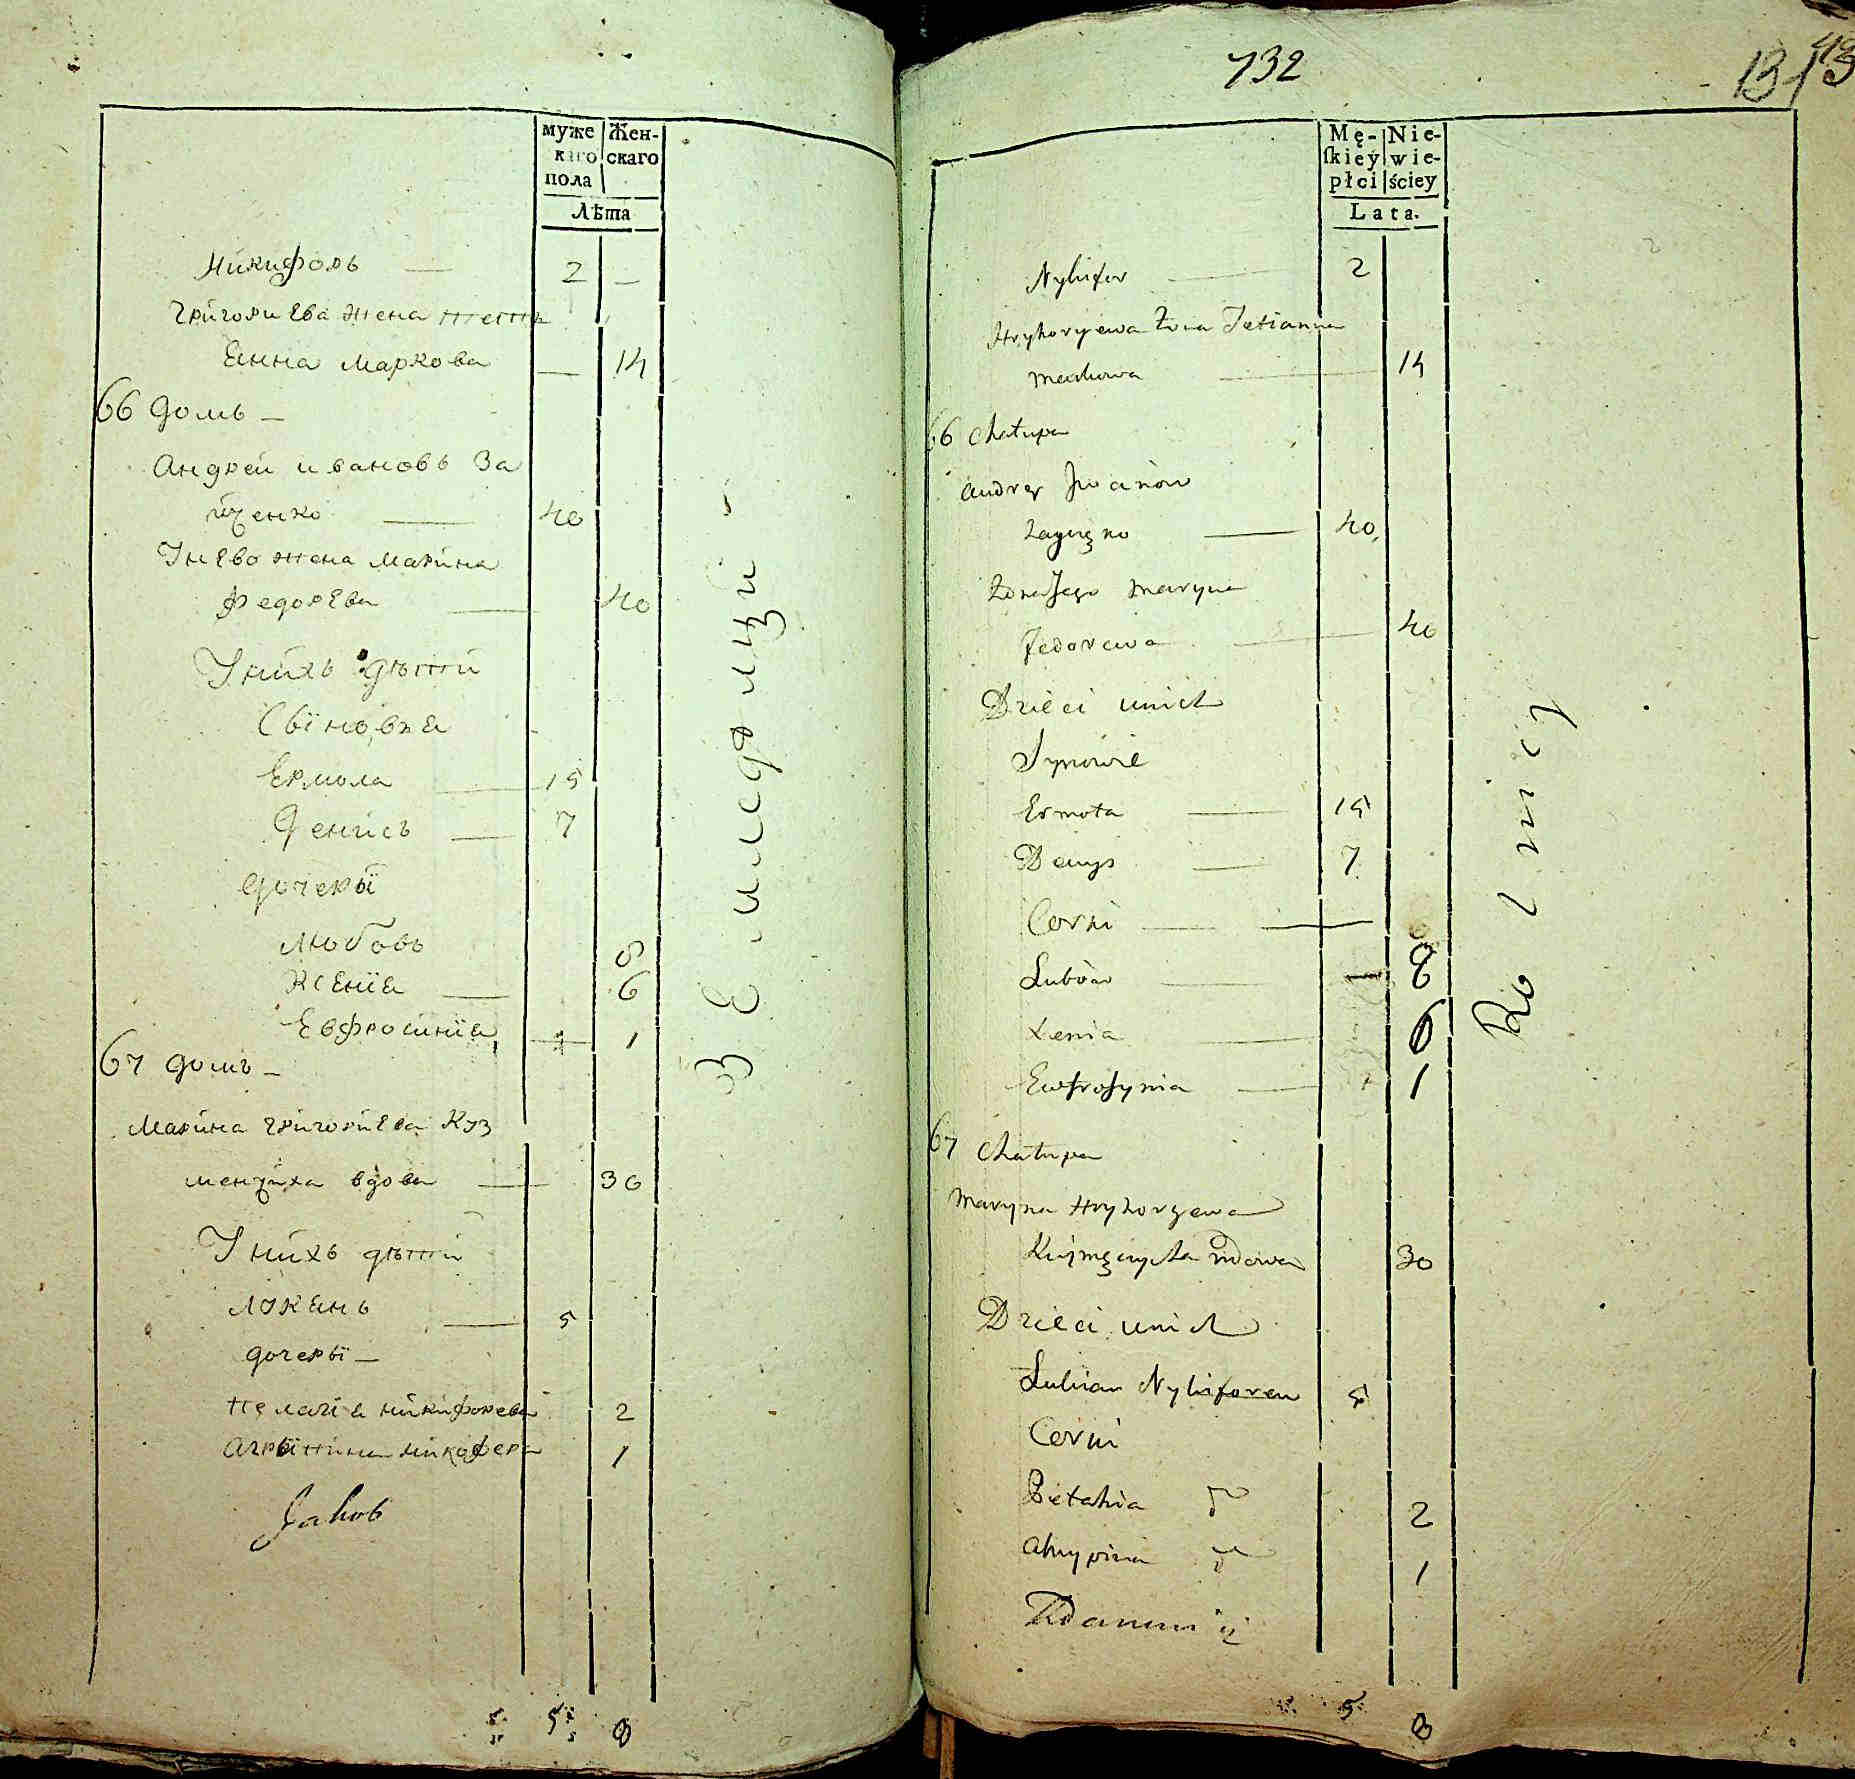 муже
каго
пола
Жен-
скаго
Лѣта
Никифоръ — 2 —
Григориева жена тетя
яна Маркова — 14
66 домъ —
Андреи ивановъ За
иченко — 40
У нево жена Марина
Федорева — 40
У нихъ дѣтей
Сыновя
Ермола — 15
Денисъ — 7
дочеры
Любовъ 8
Ксения — 6
Евфросиния — 1
67 домъ —
Марина Григориева Куз
менчиха вдова — 30
У нихъ дѣтей
Лукянъ — 5
дочеры —
Пелагия никифорева 2
Агрыпина 1
Jakob
Земледелцы
5 8
732
13
Mę-
ſkiey
płci
Nie-
wie-
ściey
Lata.
Nykifor — 2
Hryhoryewa Żona Tetianna
Markowa — 14
66 Chałupa
Andrey Jwanow
— 40
Żona Jego Maryna
Fedorewa — 40
Dzieci unich
Synowie
Ermoła — 15
Denys — 7
Corki —
Lubow — 8
Xenia — 6
Ewfrosynia — 1
67 Chałupa
Maryna Hryhoryewa
Kuzmęczycha wdowa 30
Dzieci unich
Lukian Nykiforow 5
Corki
Pełahia 2
Ahrypina 1
Rolnicy
5 8